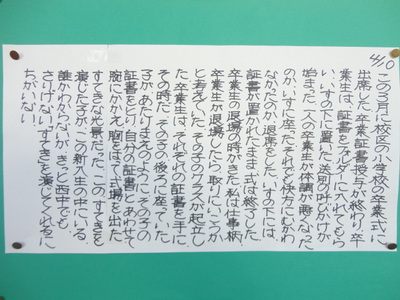 4/10
この3月に校区の小学校の卒業式に
出席した 卒業証書授与が終わり 卒
業生は、証書をフォルダーに入れてもら
い、いすの下に置いた 送別の呼びかけが
始まった 一人の卒業生が体調が悪くなった
のか、いすに座った それでも快方にむかわ
なかったのか 退席をした いすの下には
証書が置かれたまま 式は終了した
卒業生の退場の時がきた 私は仕事柄、
卒業生が退場したら取りにいこうか
と考えていた その子のクラスが起立し
た 卒業生は、それぞれの証書を手に
その時だ その子の後ろに座っていた
子が あたりまえのように その子の
証書をとり 自分の証書とあわせて
腕にかかえ 胸をはって式場を出た
すてきな光景だった この「すてき」を
演じた子が、この新入生の中にいる
誰かわからないが きっと西中でも
さりげない「すてき」を演じてくれるに
ちがいない